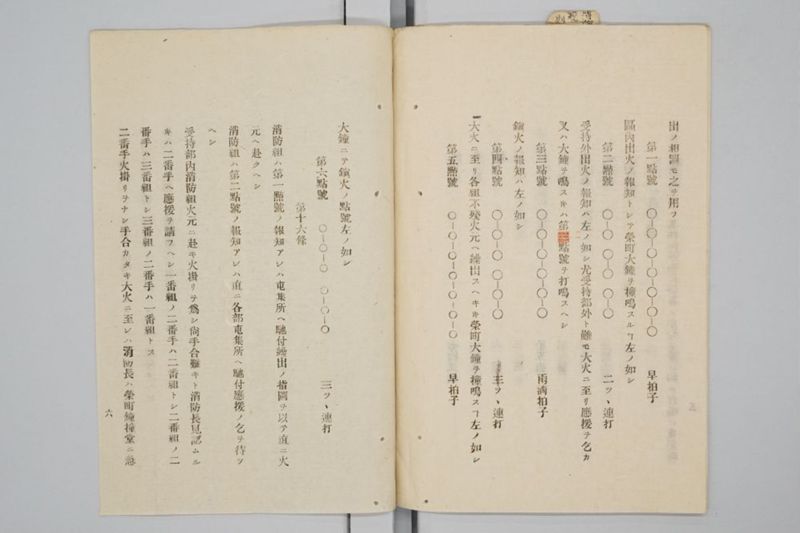 出ノ相圖モ之ヲ用フ
第一點號 〇-〇-〇-〇-〇-〇-〇 早拍子
區内出火ノ報知トシテ榮町大鐘ヲ撞鳴スルヿ左ノ如シ
第二點號 〇-〇 〇-〇 〇-〇 二ツヽ連打
受持外出火ノ報知ハ左ノ如シ尤受持部外ト雖モ大火ニ至リ應援ヲ乞フカ
又ハ大鐘ヲ鳴スルハ第二點號ヲ打鳴スヘシ
第三點號 〇-〇-〇-〇-〇-〇 雨滴拍子
鎭火ノ報知ハ左ノ如シ
第四點號 〇-〇-〇 〇-〇-〇 三ツヽ連打
一大火ニ至リ各組不殘火元ヘ繰出スヘキハ榮町大鐘ヲ撞鳴スヿ左ノ如シ
第五點號 〇-〇-〇-〇-〇-〇-〇 早拍子
大鐘ニテ鎭火ノ點號左ノ如シ
第六點號 〇-〇-〇 〇-〇-〇 三ツヽ連打
第十六條
消防組ハ第一點號ノ報知アレハ屯集所ヘ馳付繰出ノ指圖ヲ以テ直ニ火
元ヘ赴クヘシ
消防組ハ第二點號ノ報知アレハ直ニ各部屯集所ヘ馳付應援ノ乞ヲ待ツ
ヘシ
受持部内消防組火元ニ赴キ火掛リヲ爲シ尚手合難キト消防長見認ムル
キハ二番手ヘ應援ヲ請フヘシ一番組ノ二番手ハ二番組トシ二番組ノ二
番手ハ三番組トシ三番組ノ二番手ハ一番組トス
二番手火掛リヲナシ手合カタキ大火ニ至レハ消防長ハ榮町鐘撞堂ニ急
六